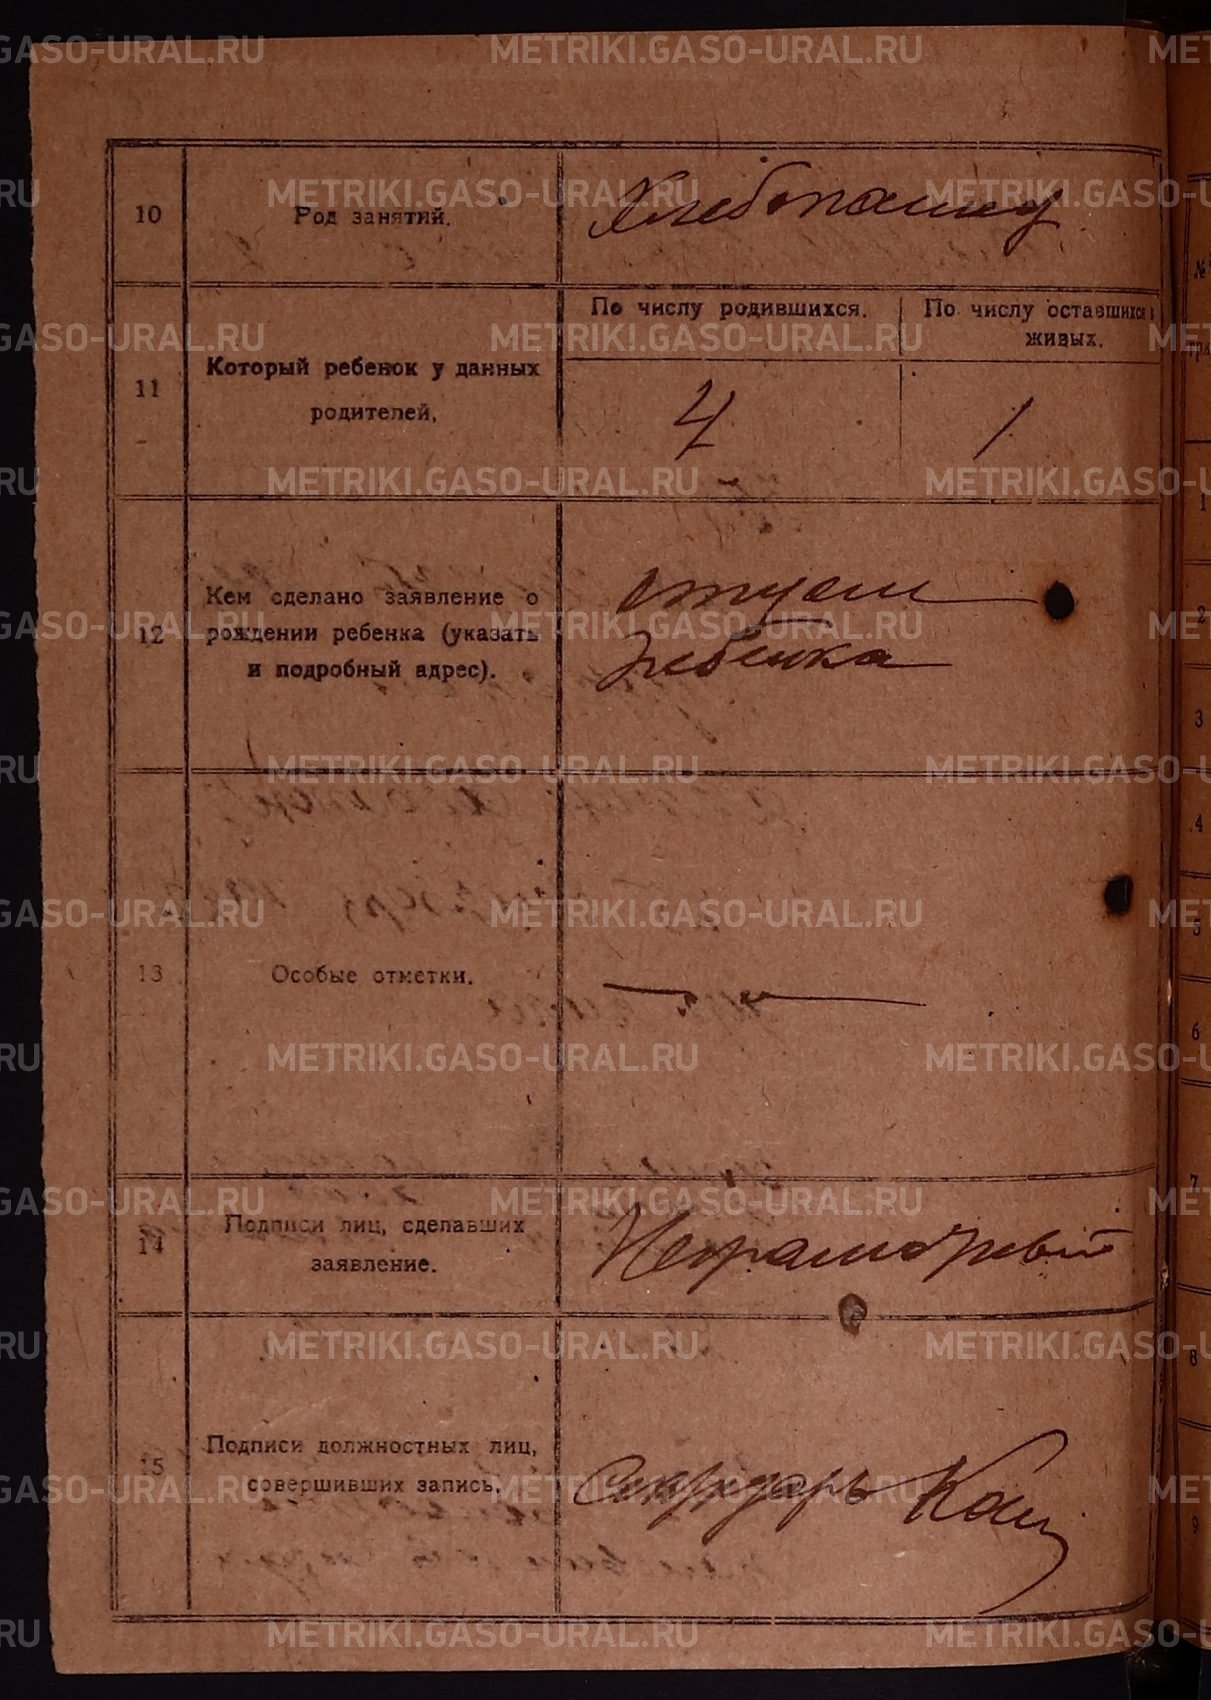 10
Род занятий.
Хлебопашец
11
Который ребенок у данных
родителей.
По числу родившихся.
По числу оставшихся в
живых.
4
1
12
Кем сделано заявление о
рождении ребенка (указать
и подробный адрес).
отцом
ребенка
13
Особые отметки.
14
Подписи лиц, сделавших
заявление.
Неграмотный
15
Подписи должностных лиц,
совершивших запись.
Секретарь
METRIKI.GASO-URAL.RU
№
1
2
3
4
5
6
7
8
9